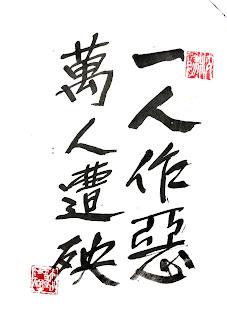 一人作惡
萬人遭殃